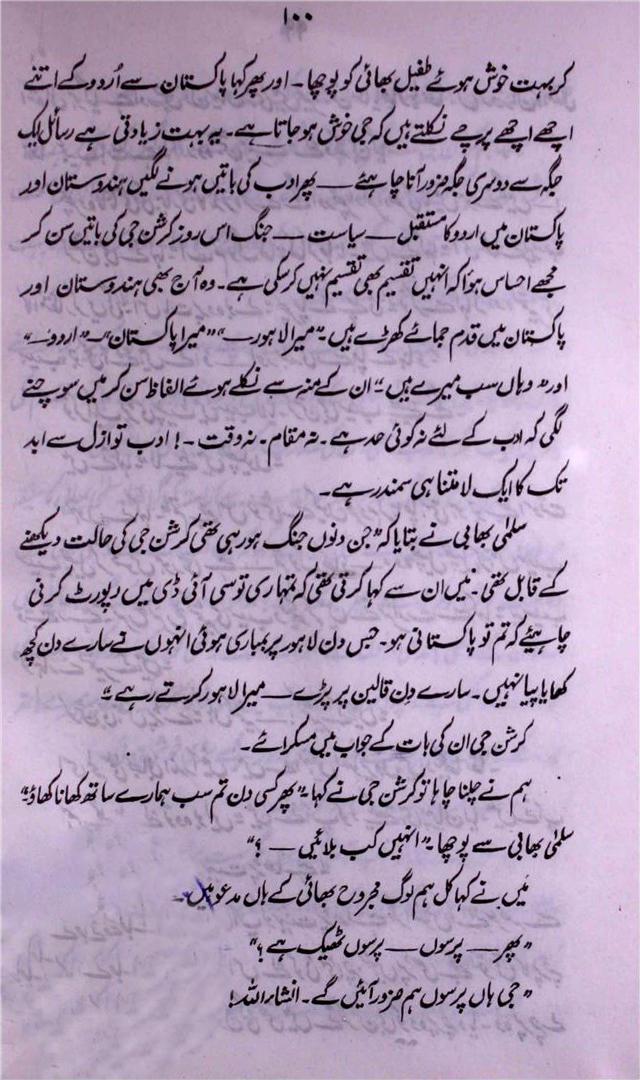 ۱۰۰
کر بہت خوش ہوئے طفیل بھائی کو پوچھا۔ اور پھر کہا پاکستان سے اُردو کے اتنے
اچھے اچھے پرچے نکلتے ہیں کہ جی خوش ہو جاتا ہے۔ یہ بہت زیادتی ہے رسائل ایک
جگہ سے دوسری جگہ ضرور آنا چاہئے — پھر ادب کی باتیں ہونے لگیں ہندوستان اور
پاکستان میں اردو کا مستقبل — سیاست — جنگ اس روز کرشن جی کی باتیں سن کر
مجھے احساس ہؤا کہ انہیں تقسیم بھی تقسیم نہیں کر سکی ہے۔ وہ آج بھی ہندوستان اور
پاکستان میں قدم جمائے کھڑے ہیں۔ "میرا لاہور —" "میرا پاکستان" — "اردو —"
اور "وہاں سب میرے ہیں" ان کے منہ سے نکلے ہوئے الفاظ سن کر میں سوچنے
لگی کہ ادب کے لئے نہ کوئی حد ہے۔ نہ مقام۔ نہ وقت ۔ ! ادب تو ازل سے ابد
تک کا ایک لامتناہی سمندر ہے۔
سلمٰی بھابی نے بتایا کہ "جن دنوں جنگ ہو رہی تھی کرشن جی کی حالت دیکھنے
کے قابل تھی۔ میں ان سے کہا کرتی تھی کہ تمہاری تو سی آئی ڈی میں رپورٹ کرنی
چاہیئے کہ تم تو پاکستانی ہو۔ جس دن لاہور پر بمباری ہوئی انہوں نے سارے دن کچھ
کھایا پیا نہیں۔ سارے دِن قالین پر پڑے — میرا لاہور کرتے رہے۔"
کرشن جی ان کی بات کے جواب میں مسکرائے۔
ہم نے چلنا چاہا تو کرشن جی نے کہا۔ "پھر کسی دن تم سب ہمارے ساتھ کھانا کھاؤ۔"
سلمٰی بھابی سے پوچھا۔ "انہیں کب بلائیں — ؟"
مَیں نے کہا کل ہم لوگ مجروح بھائی کے ہاں مدعو ہیں۔
"پھر — پرسوں — پرسوں ٹھیک ہے ؟"
"جی ہاں پرسوں ہم ضرور آئیں گے۔ انشاء اللہ !